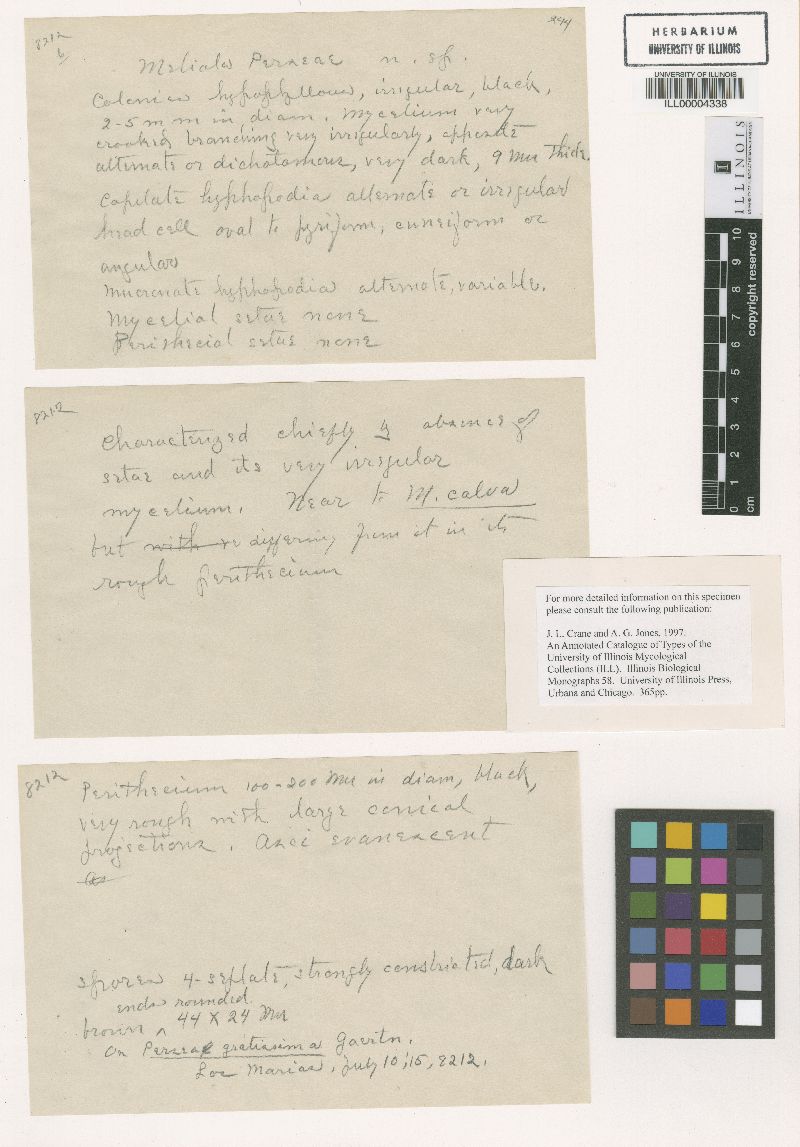 8212
b
244
Meliola Perseae n. sp.
Colonies hypophyllous, irregular, black,
2-5 mm in diam. Mycelium very
crooked, branching very irregularly, opposite
alternate or dichotomous, very dark, 9 Mu thick.
Capitate hyphopodia alternate or irregular
head cell oval to pyriform, cuneiform or
angular
Mucronate hyphopodia alternate, variable.
Mycelial setae none
Perithecial setae none
8212
Characterized chiefly by absence of
setae and its very irregular
mycelium. Near to M. calva
but with re differing from it in its
rough perithecium
8212
Perithecium 100-200 Mu in diam, black,
very rough with large conical
projections. Asci evanescent
as
spores 4-septate, strongly constricted, dark
ends rounded.
brown ^ 44 X 24 Mu
On Perseae gratissima Gaertn.
Los Marias, July 10, '15, 8212.
HERBARIUM
UNIVERSITY OF ILLINOIS
UNIVERSITY OF ILLINOIS
ILL00004338
I ILLINOIS
0 1 2 3 4 5 6 7 8 9 10
cm
copyright reserved
For more detailed information on this specimen
please consult the following publication:
J. L. Crane and A. G. Jones. 1997.
An Annotated Catalogue of Types of the
University of Illinois Mycological
Collections (ILL). Illinois Biological
Monographs 58. University of Illinois Press,
Urbana and Chicago. 365pp.